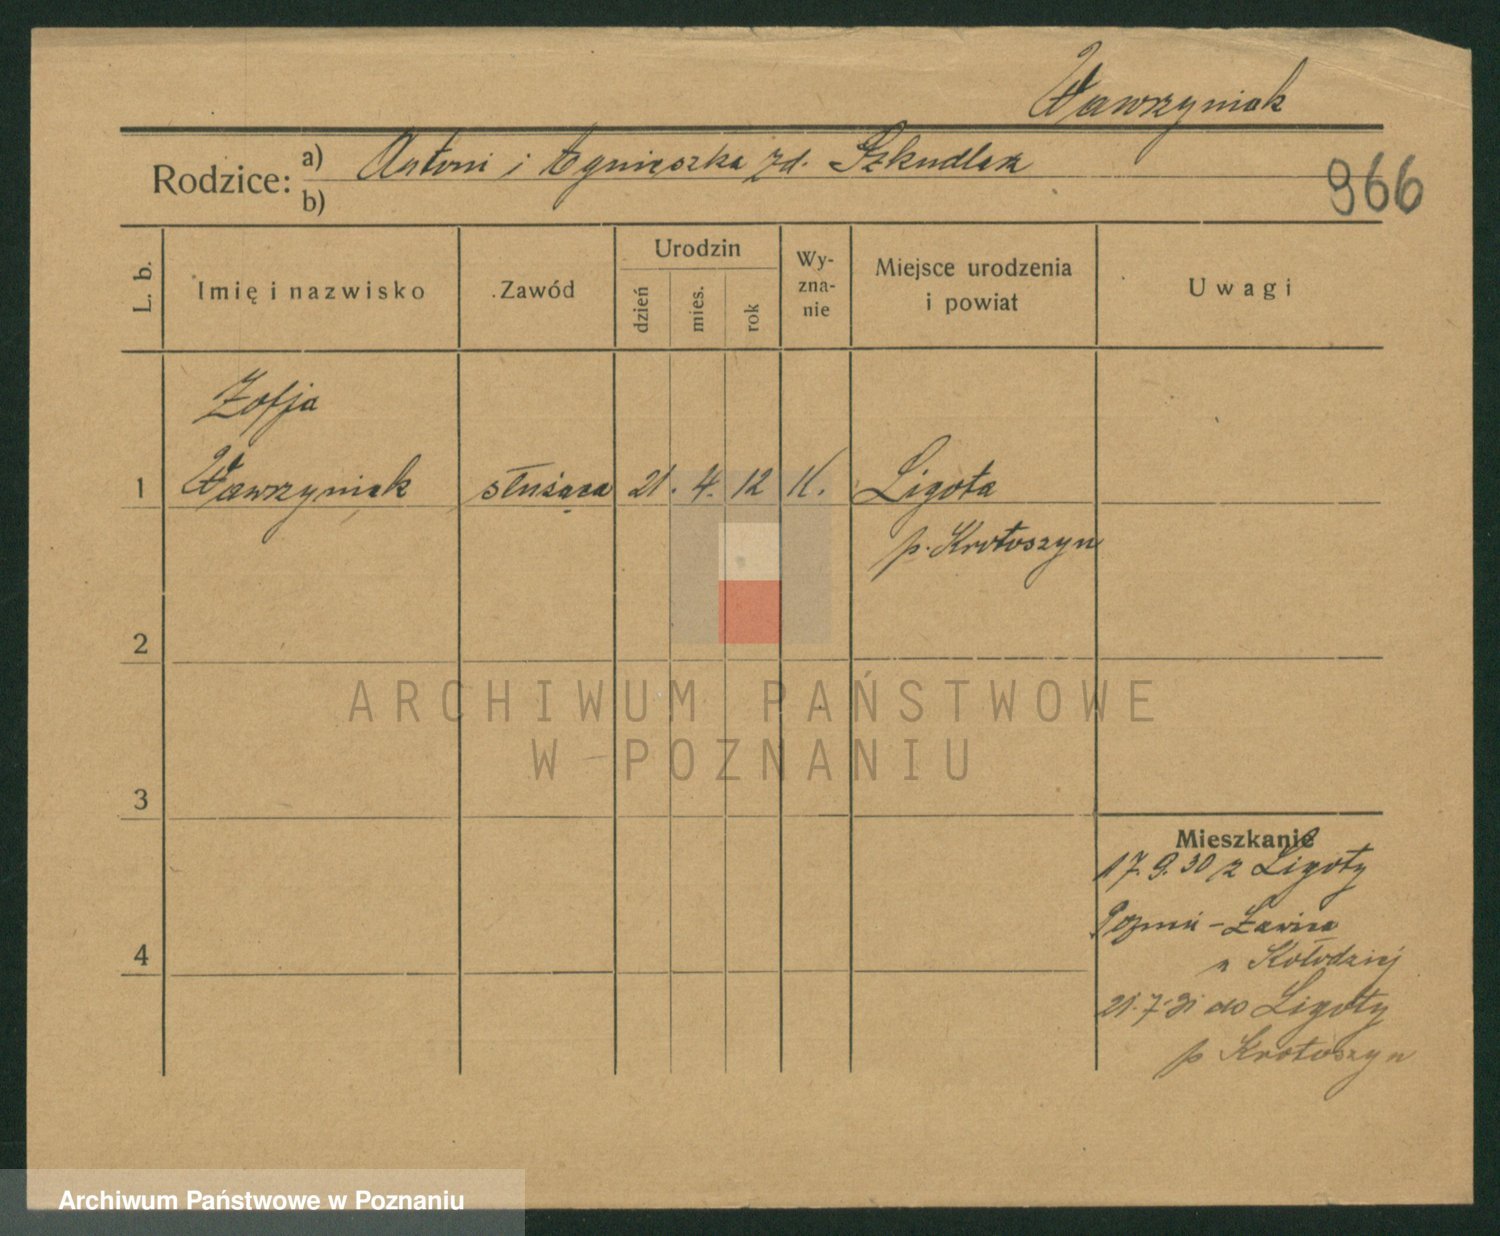 Wawrzyniak
Rodzice: a) Antoni i Agnieszka zd. Szkudlak
b)
966
L. b.
Imię i nazwisko
Zawód
Urodzin
dzień
mies.
rok
Wy-
zna-
nie
Miejsce urodzenia
i powiat
Uwagi
Zofja
1 Wawrzyniak służąca 21. 4. 12 k. Ligota
p. Krotoszyn
2
ARCHIWUM PAŃSTWOWE
W POZNANIU
3
Mieszkanie
17.9.30 z Ligoty
Poznań - Ławica
Kołodziej
4
21.7.31 do Ligoty
p Krotoszyn
Archiwum Państwowe w Poznaniu